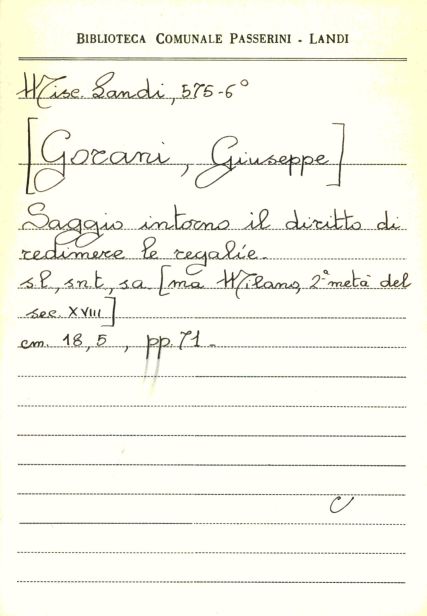 BIBLIOTECA COMUNALE PASSERINI - LANDI
Misc. Landi, 575-6°
[Gorani, Giuseppe]
Saggio intorno il diritto di
redimere le regalíe.
s.l., s.n.t., s.a. [ma Milano, 2ª metà del
sec. XVIII]
cm. 18,5, pp. 71.
C